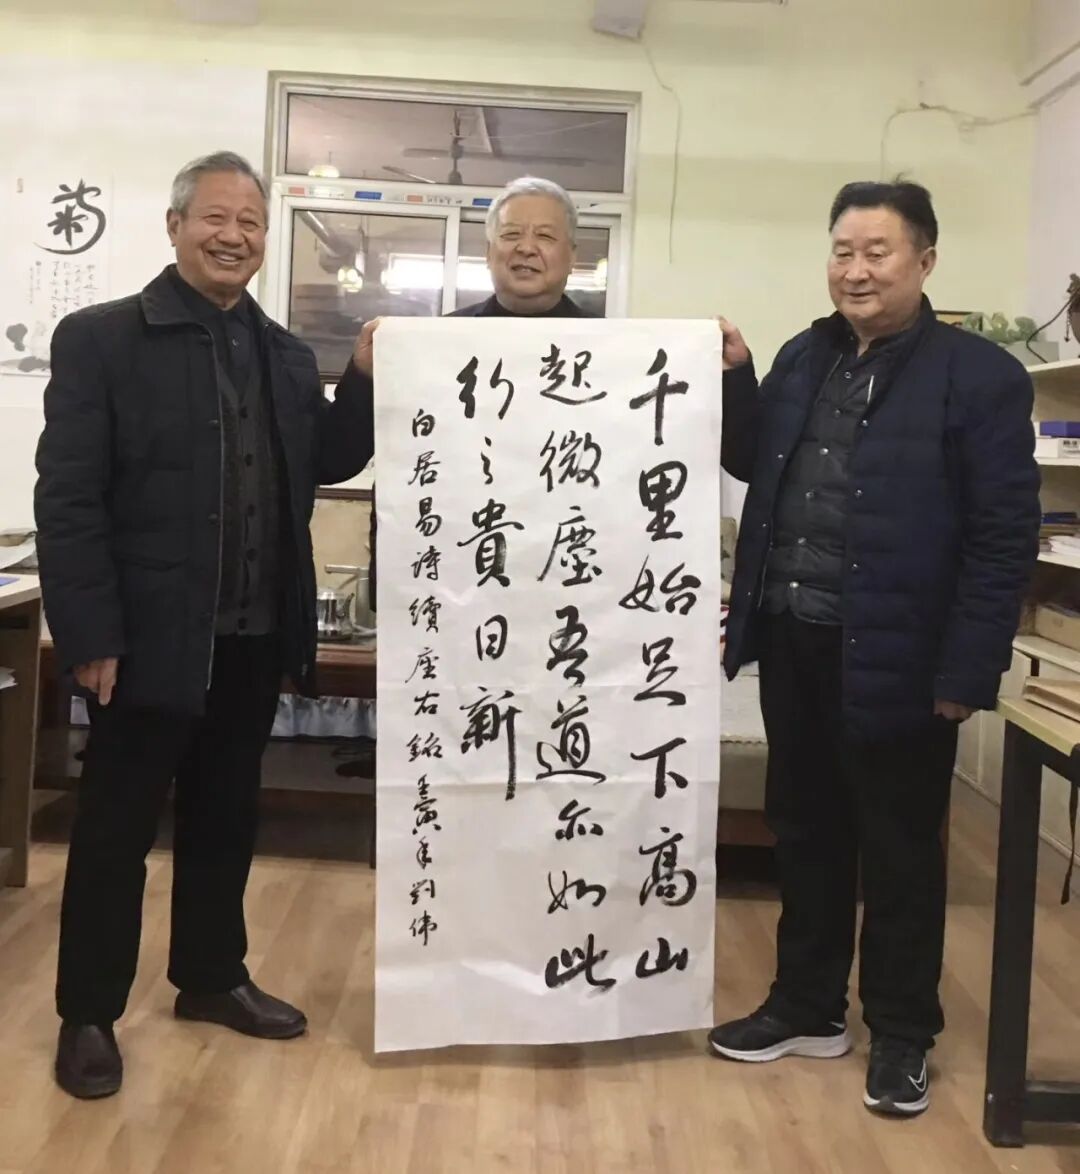 千里始足下高山
起微塵吾道亦如此
行之貴日新
白居易詩續座右銘壬寅年劉偉
菊